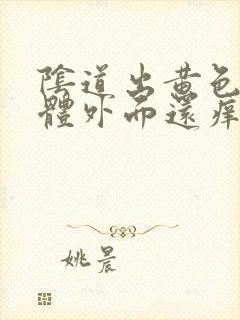 陰道出黃色
體外而還痒
姚晨